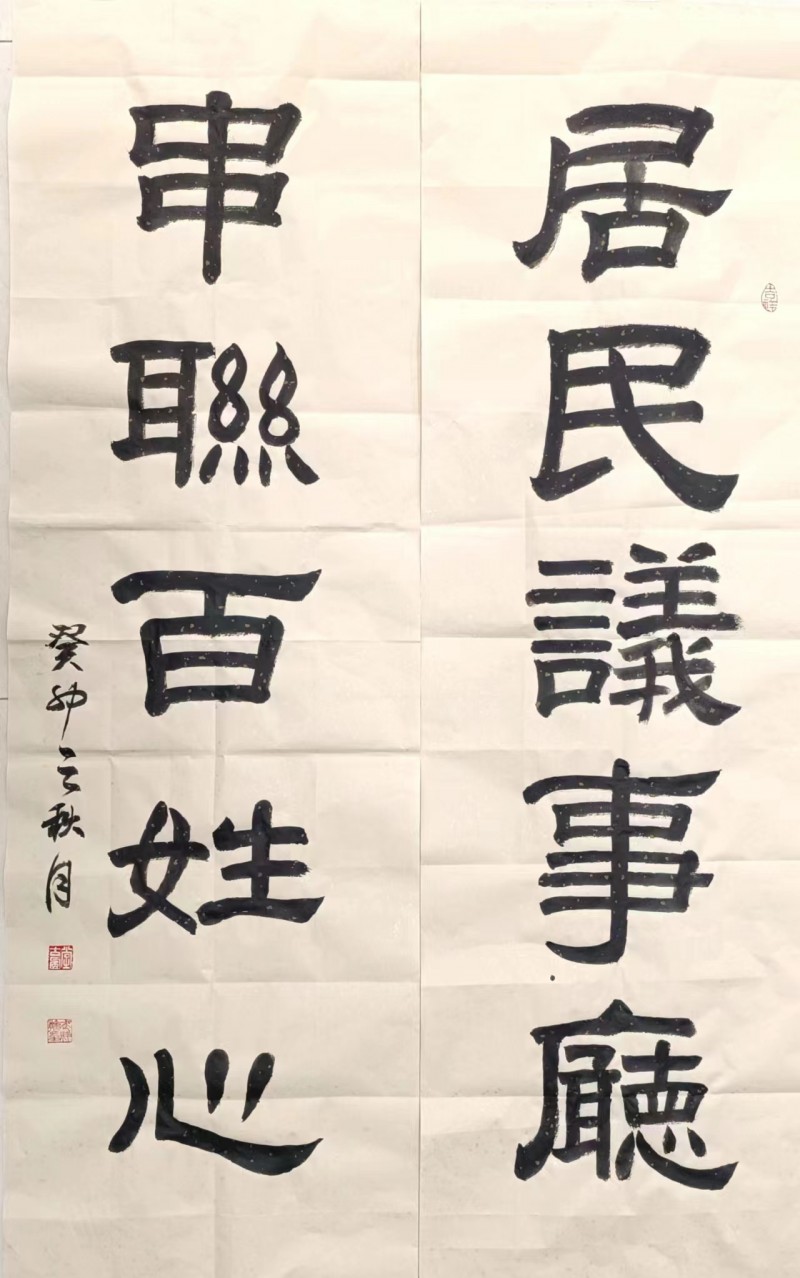 居民議事廳
串聯百姓心
癸卯之秋月